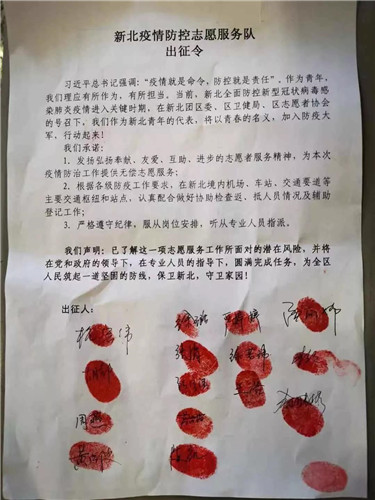 新北疫情防控志愿服务队
出征令
习近平总书记强调："疫情就是命令、防控就是责任"。作为青年，
我们理应有所作为，有所担当。当前，新北全面防控新型冠状病毒感
染肺炎疫情进入关键时期，在新北团区委、区卫健局、区志愿者协会
的号召下，我们作为新北青年的代表，将以青春的名义，加入防疫大
军，行动起来！
我们承诺：
1、发扬弘扬奉献、友爱、互助、进步的志愿者服务精神，为本次
疫情防治工作提供无偿志愿服务；
2、根据各级防疫工作要求，在新北境内机场、车站、交通要道等
主要交通枢纽和站点，认真配合做好协助检查返、抵人员情况及辅助
登记工作；
3、严格遵守纪律，服从岗位安排，听从专业人员指派。
我们声明：已了解这一项志愿服务工作所面对的潜在风险，并将
在党和政府的领导下，在专业人员的指导下，圆满完成任务，为全区
人民筑起一道坚固的防线，保卫新北，守卫家园！
出征人：